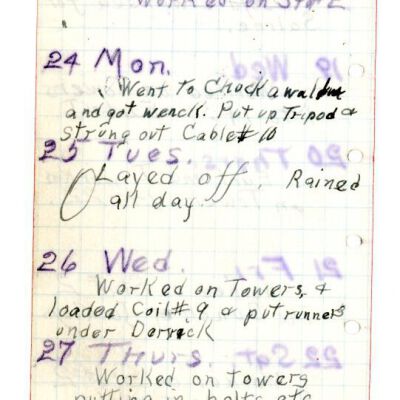 Worked on
24 Mon.
Went to
and got wenck. Put up Tripod &
strung out Cable # 10
25 Tues.
Layed off. Rained
all day.
26 Wed.
Worked on Towers, &
loaded Coil # 9 & put runners
under Derrick
27 Thurs.
Worked on Towers
putting in bolts etc